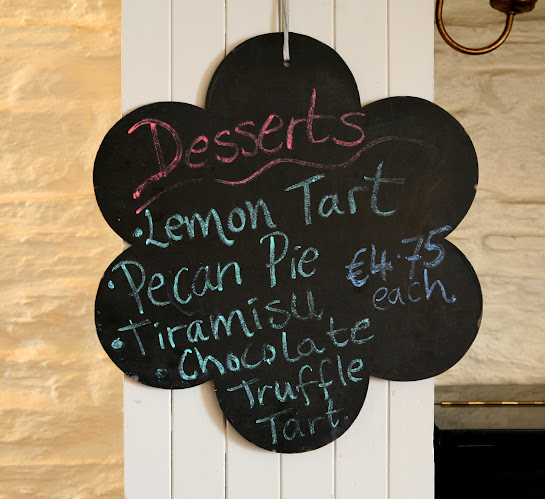 Desserts
·Lemon Tart
·Pecan Pie
€4.75
each.
·Tiramisu
·Chocolate
Truffle
Tart.